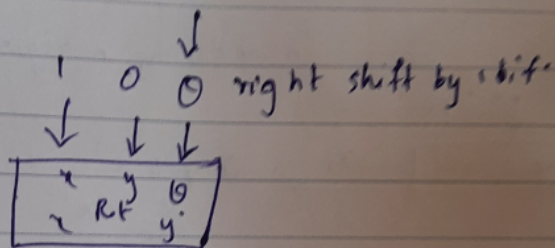 1 0 0 right shift by 1 bit.
x y 0
x Rt y